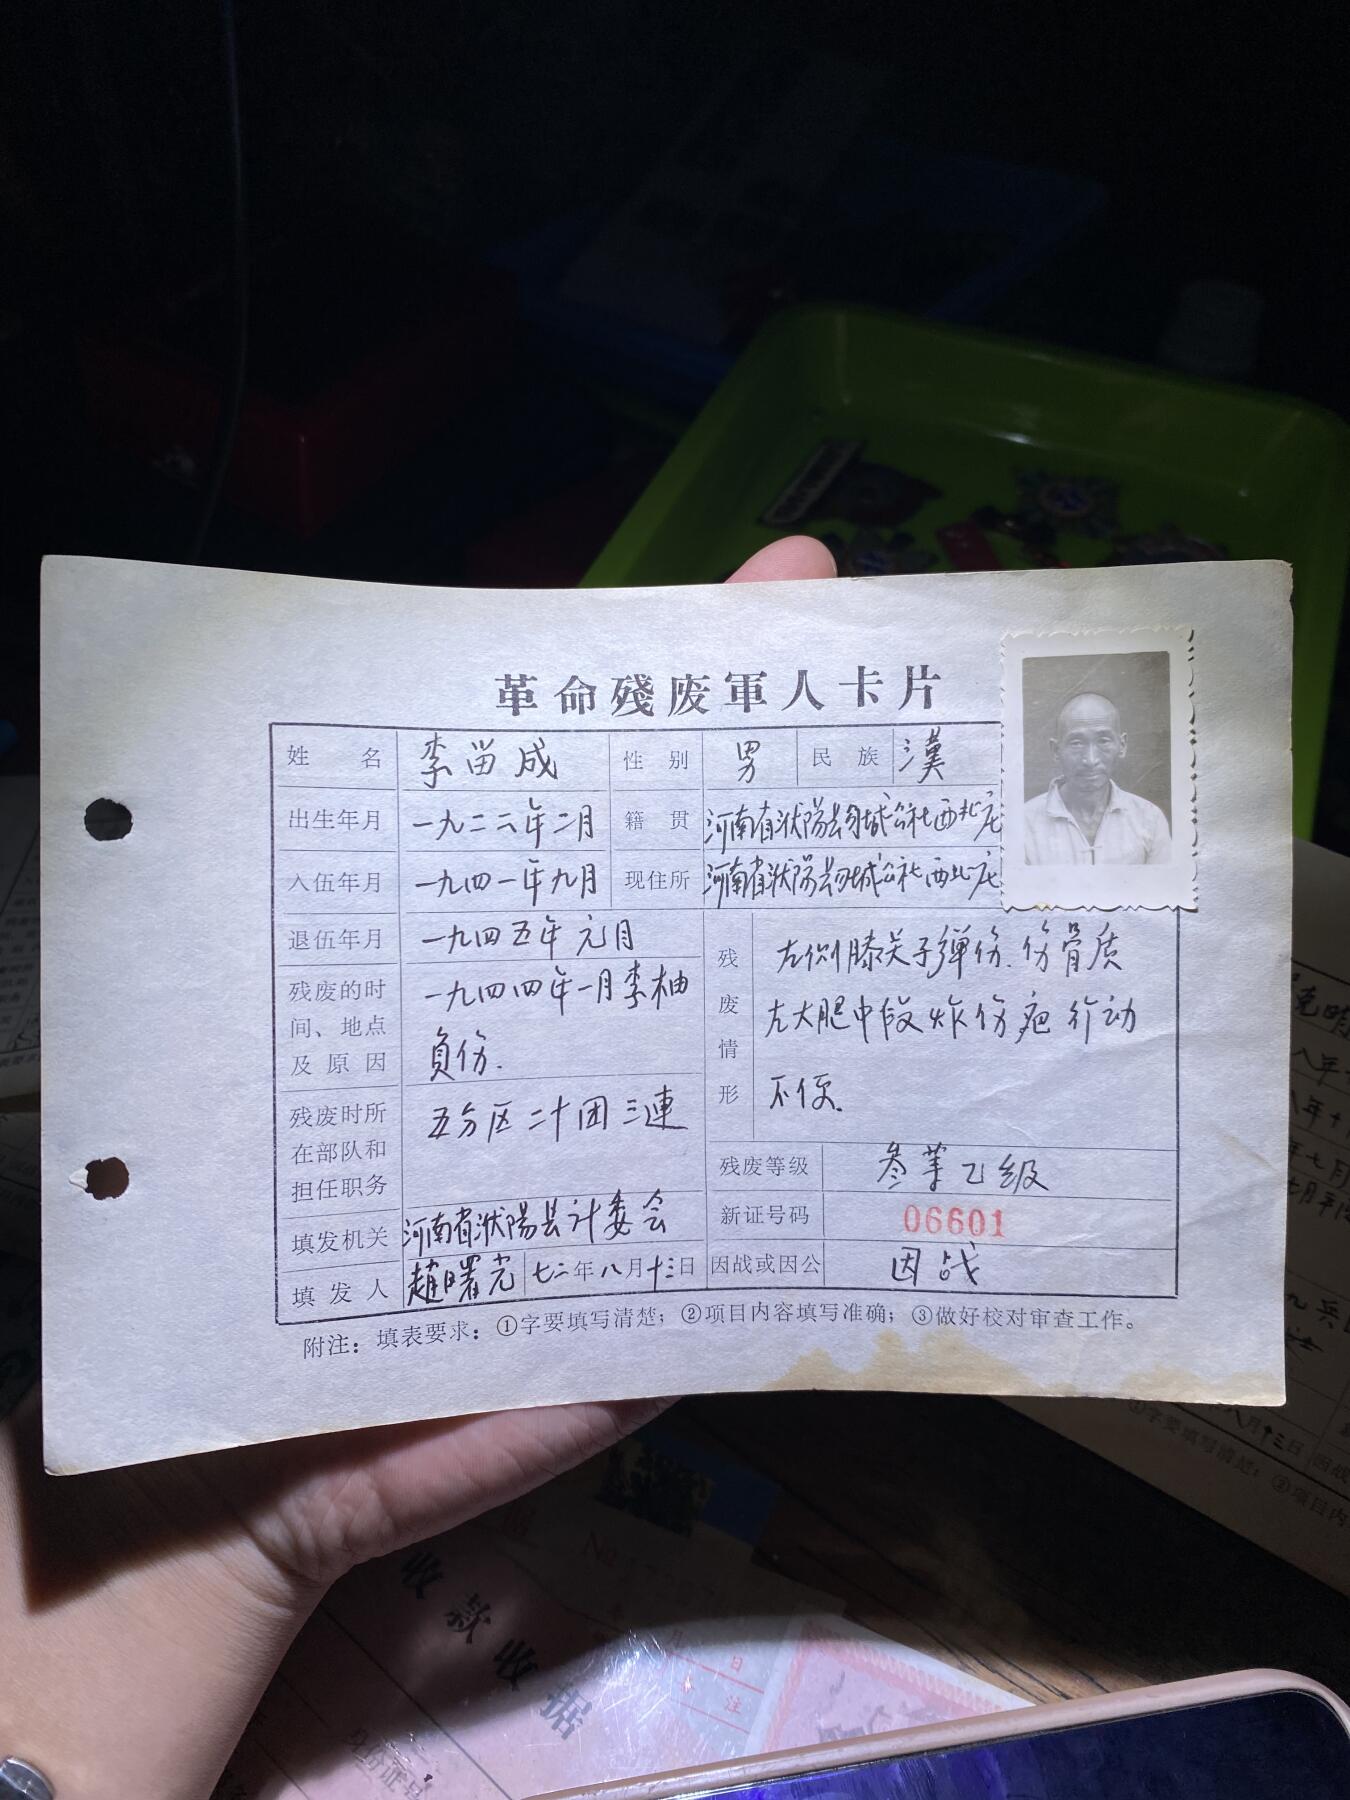 革命殘废軍人卡片
姓名 李苗成 性别 男 民族 漢
出生年月 一九二六年二月 籍贯 河南省濮陽县 城公社西北庄
入伍年月 一九四一年九月 现住所 河南省濮陽县 城公社西北庄
退伍年月 一九四五年元月
残废的时间、地点及原因 一九四四年一月李柚
负伤.
残废情形 左侧膝关子弹伤.伤骨质
左大腿中段炸伤疤行动
不便.
残废时所在部队和担任职务 五分区二十团三連
残废等级 叁等乙级
填发机关 河南省濮陽县计委会
新证号码 06601
填发人 趙曙光 七二年八月十三日 因战或因公 因战
附注：填表要求：①字要填写清楚；②项目内容填写准确；③做好校对审查工作。
收款收据